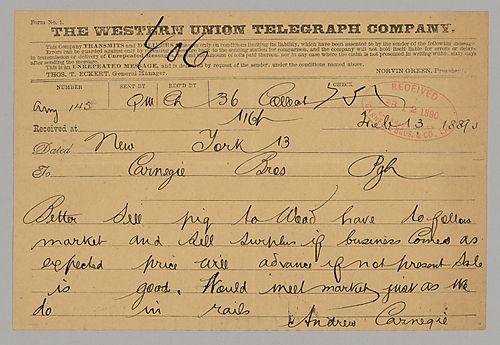 Form No. 1.
THE WESTERN UNION TELEGRAPH COMPANY.
This Company TRANSMITS and DELIVERS messages only on conditions limiting its liability, which have been assented to by the sender of the following message.
Errors can be guarded against only by repeating a message back to the sending station for comparison, and the company will not hold itself liable for errors or delays
in transmission or delivery of Unrepeated Messages, beyond the amount of tolls paid thereon, nor in any case where the claim is not presented in writing within sixty days
after sending the message.
This is an UNREPEATED MESSAGE, and is delivered by request of the sender, under the conditions named above.
THOS. T. ECKERT, General Manager. NORVIN GREEN, President.
406
NUMBER SENT BY REC'D BY CHECK
145 Pm Ch 36 Collect
RECEIVED
FEB 12 1890
BROS. & CO.
Received at 116 Feb 13 1889
Dated New York 13
To Carnegie Bros Pgh
Better sell pig to Wood have to follow
market and sell surplus if business comes as
expected price will advance if not present sale
is good. Would meet market just as we
do in rails
Andrew Carnegie